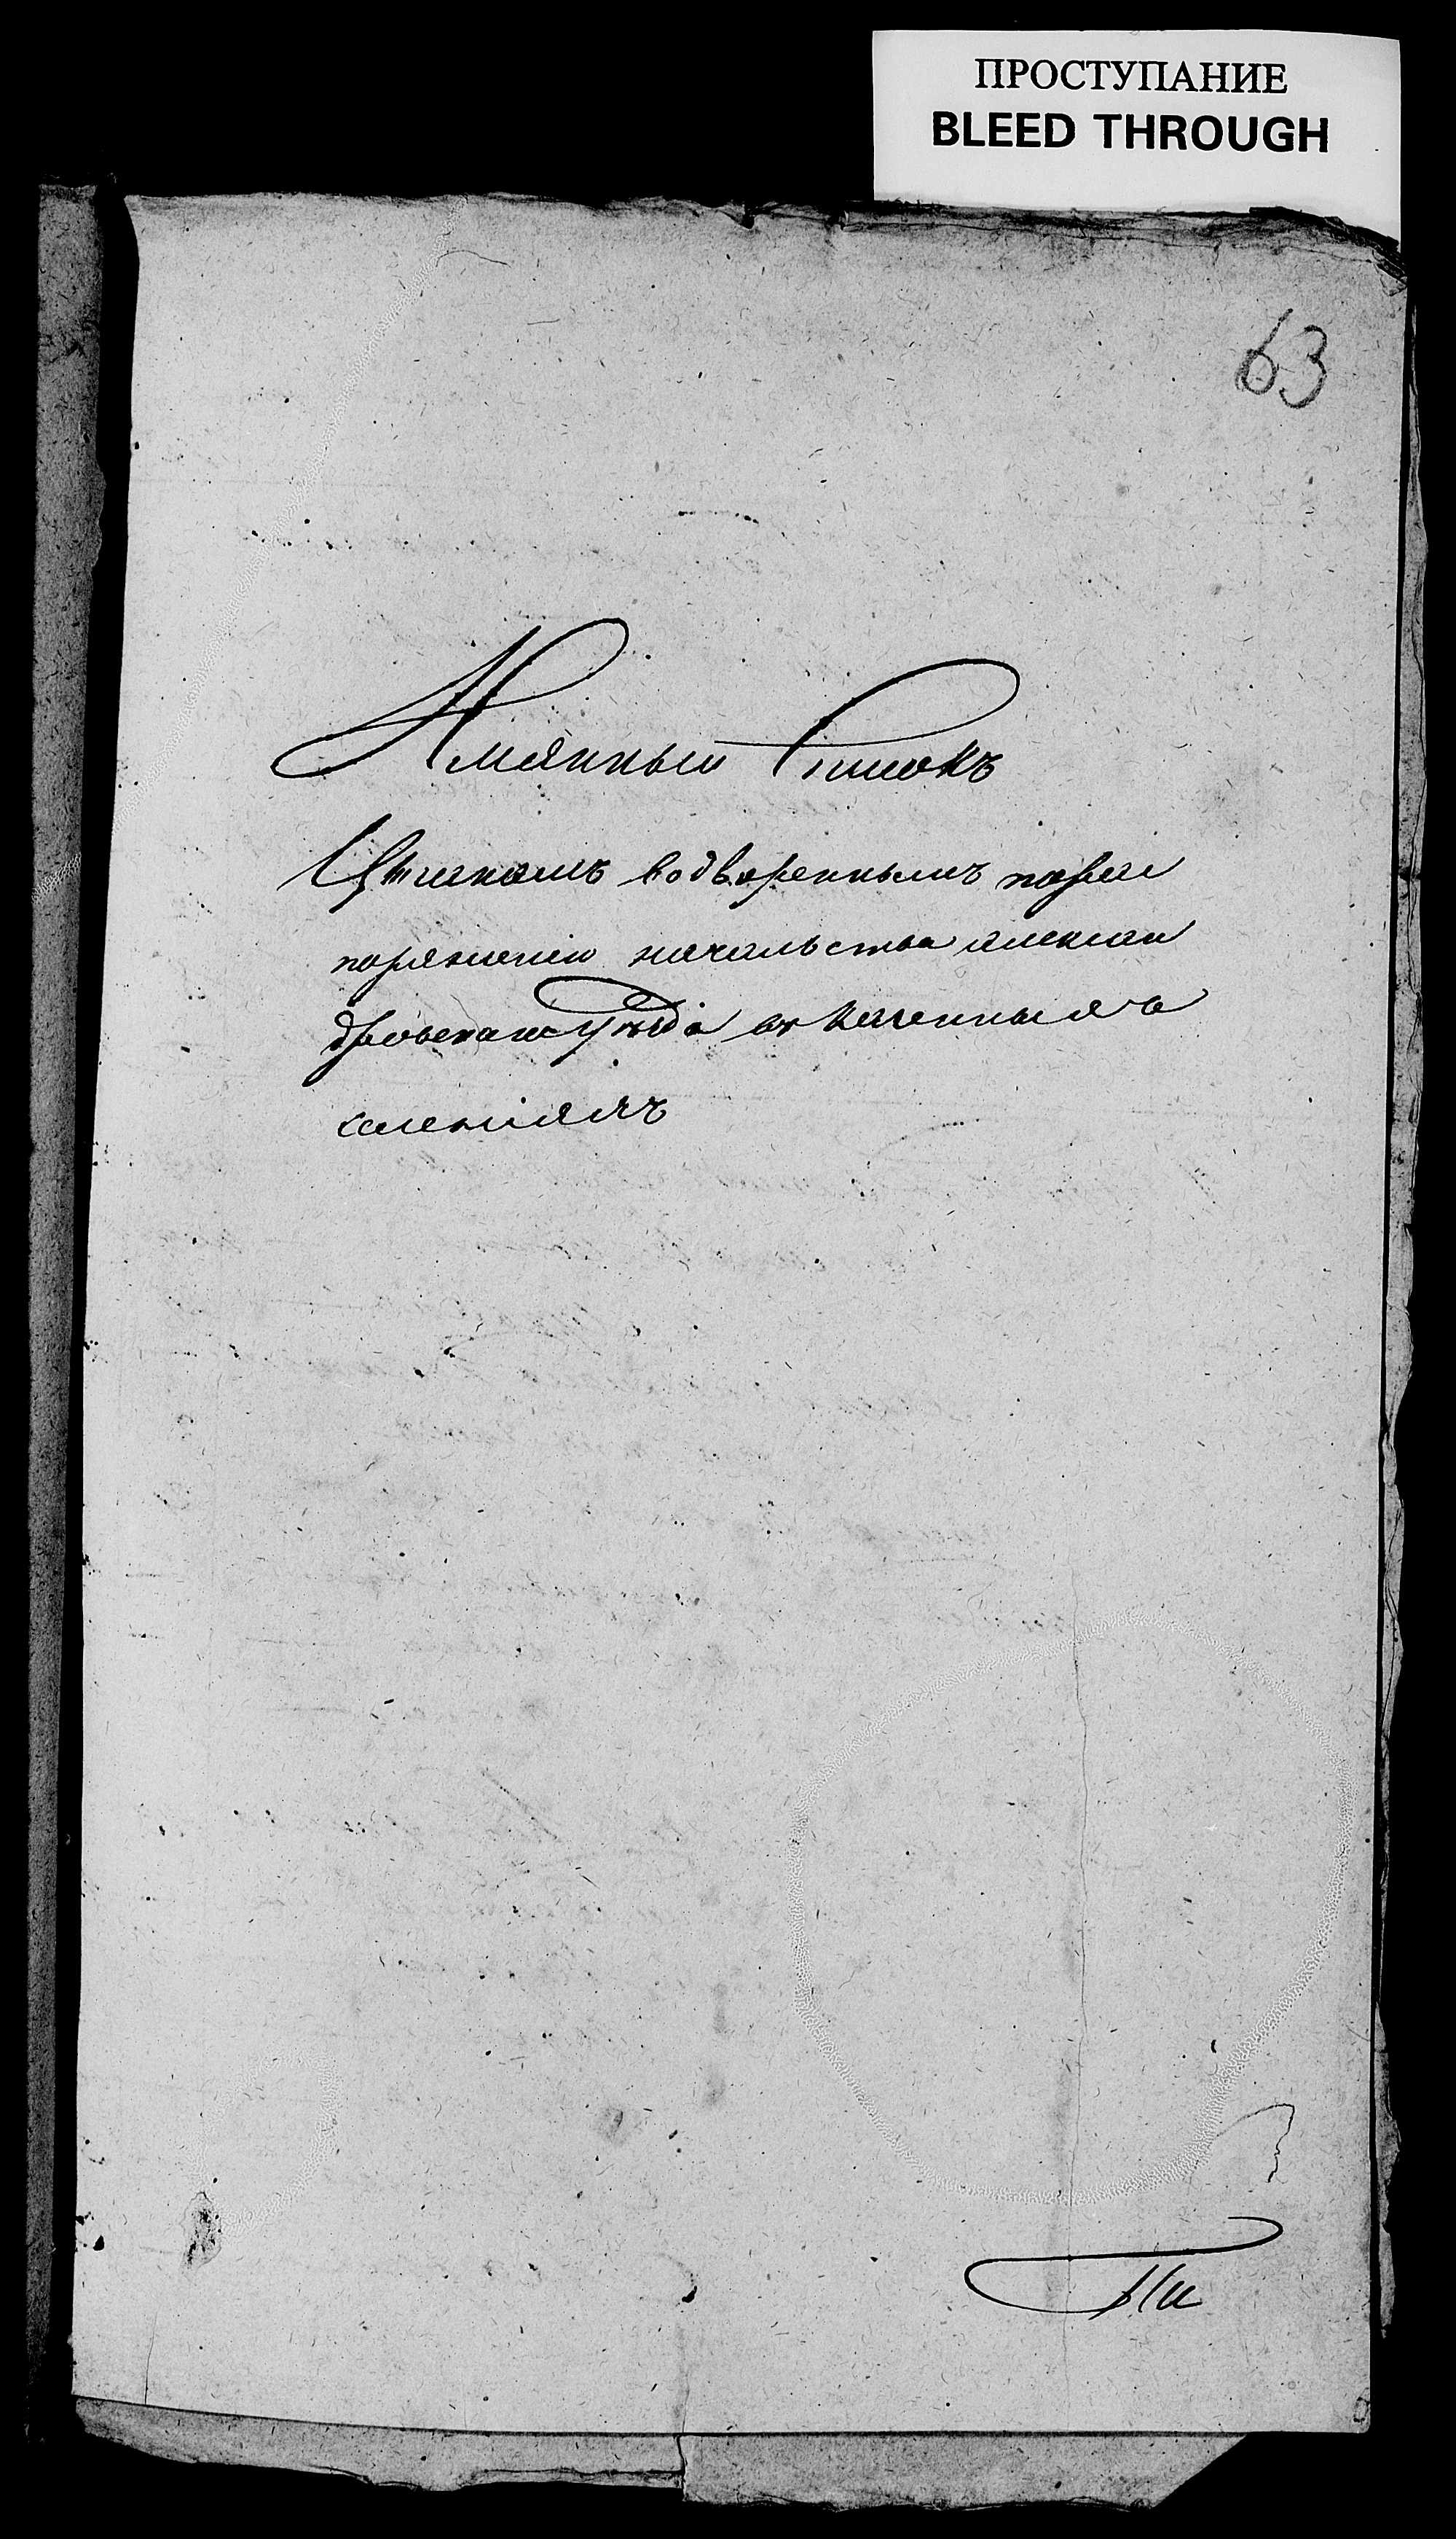 ПРОСТУПАНИЕ
BLEED THROUGH
63
Имянный Списокъ
Цыганамъ водвореннымъ порас
поряжению начальства алексан
дровскагоуезда въ казенныхъ
селенияхъ